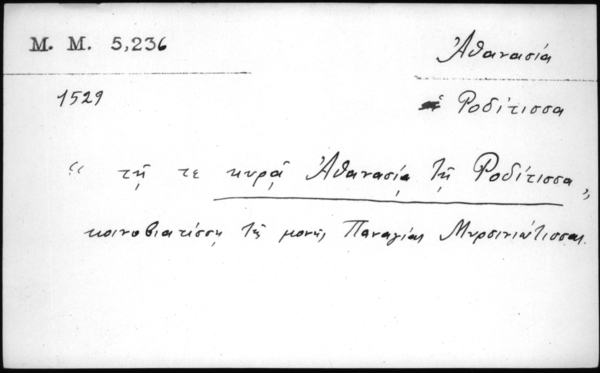 M. M. 5,236
Ἀθανασία
1529
ἡ Ροδίτισσα
“ τῇ τε κυρᾷ Ἀθανασίᾳ τῇ Ροδίτισσα,
κοινοβιατίσσῃ τῆς μονῆς Παναγίας Μυρσινιωτίσσας.